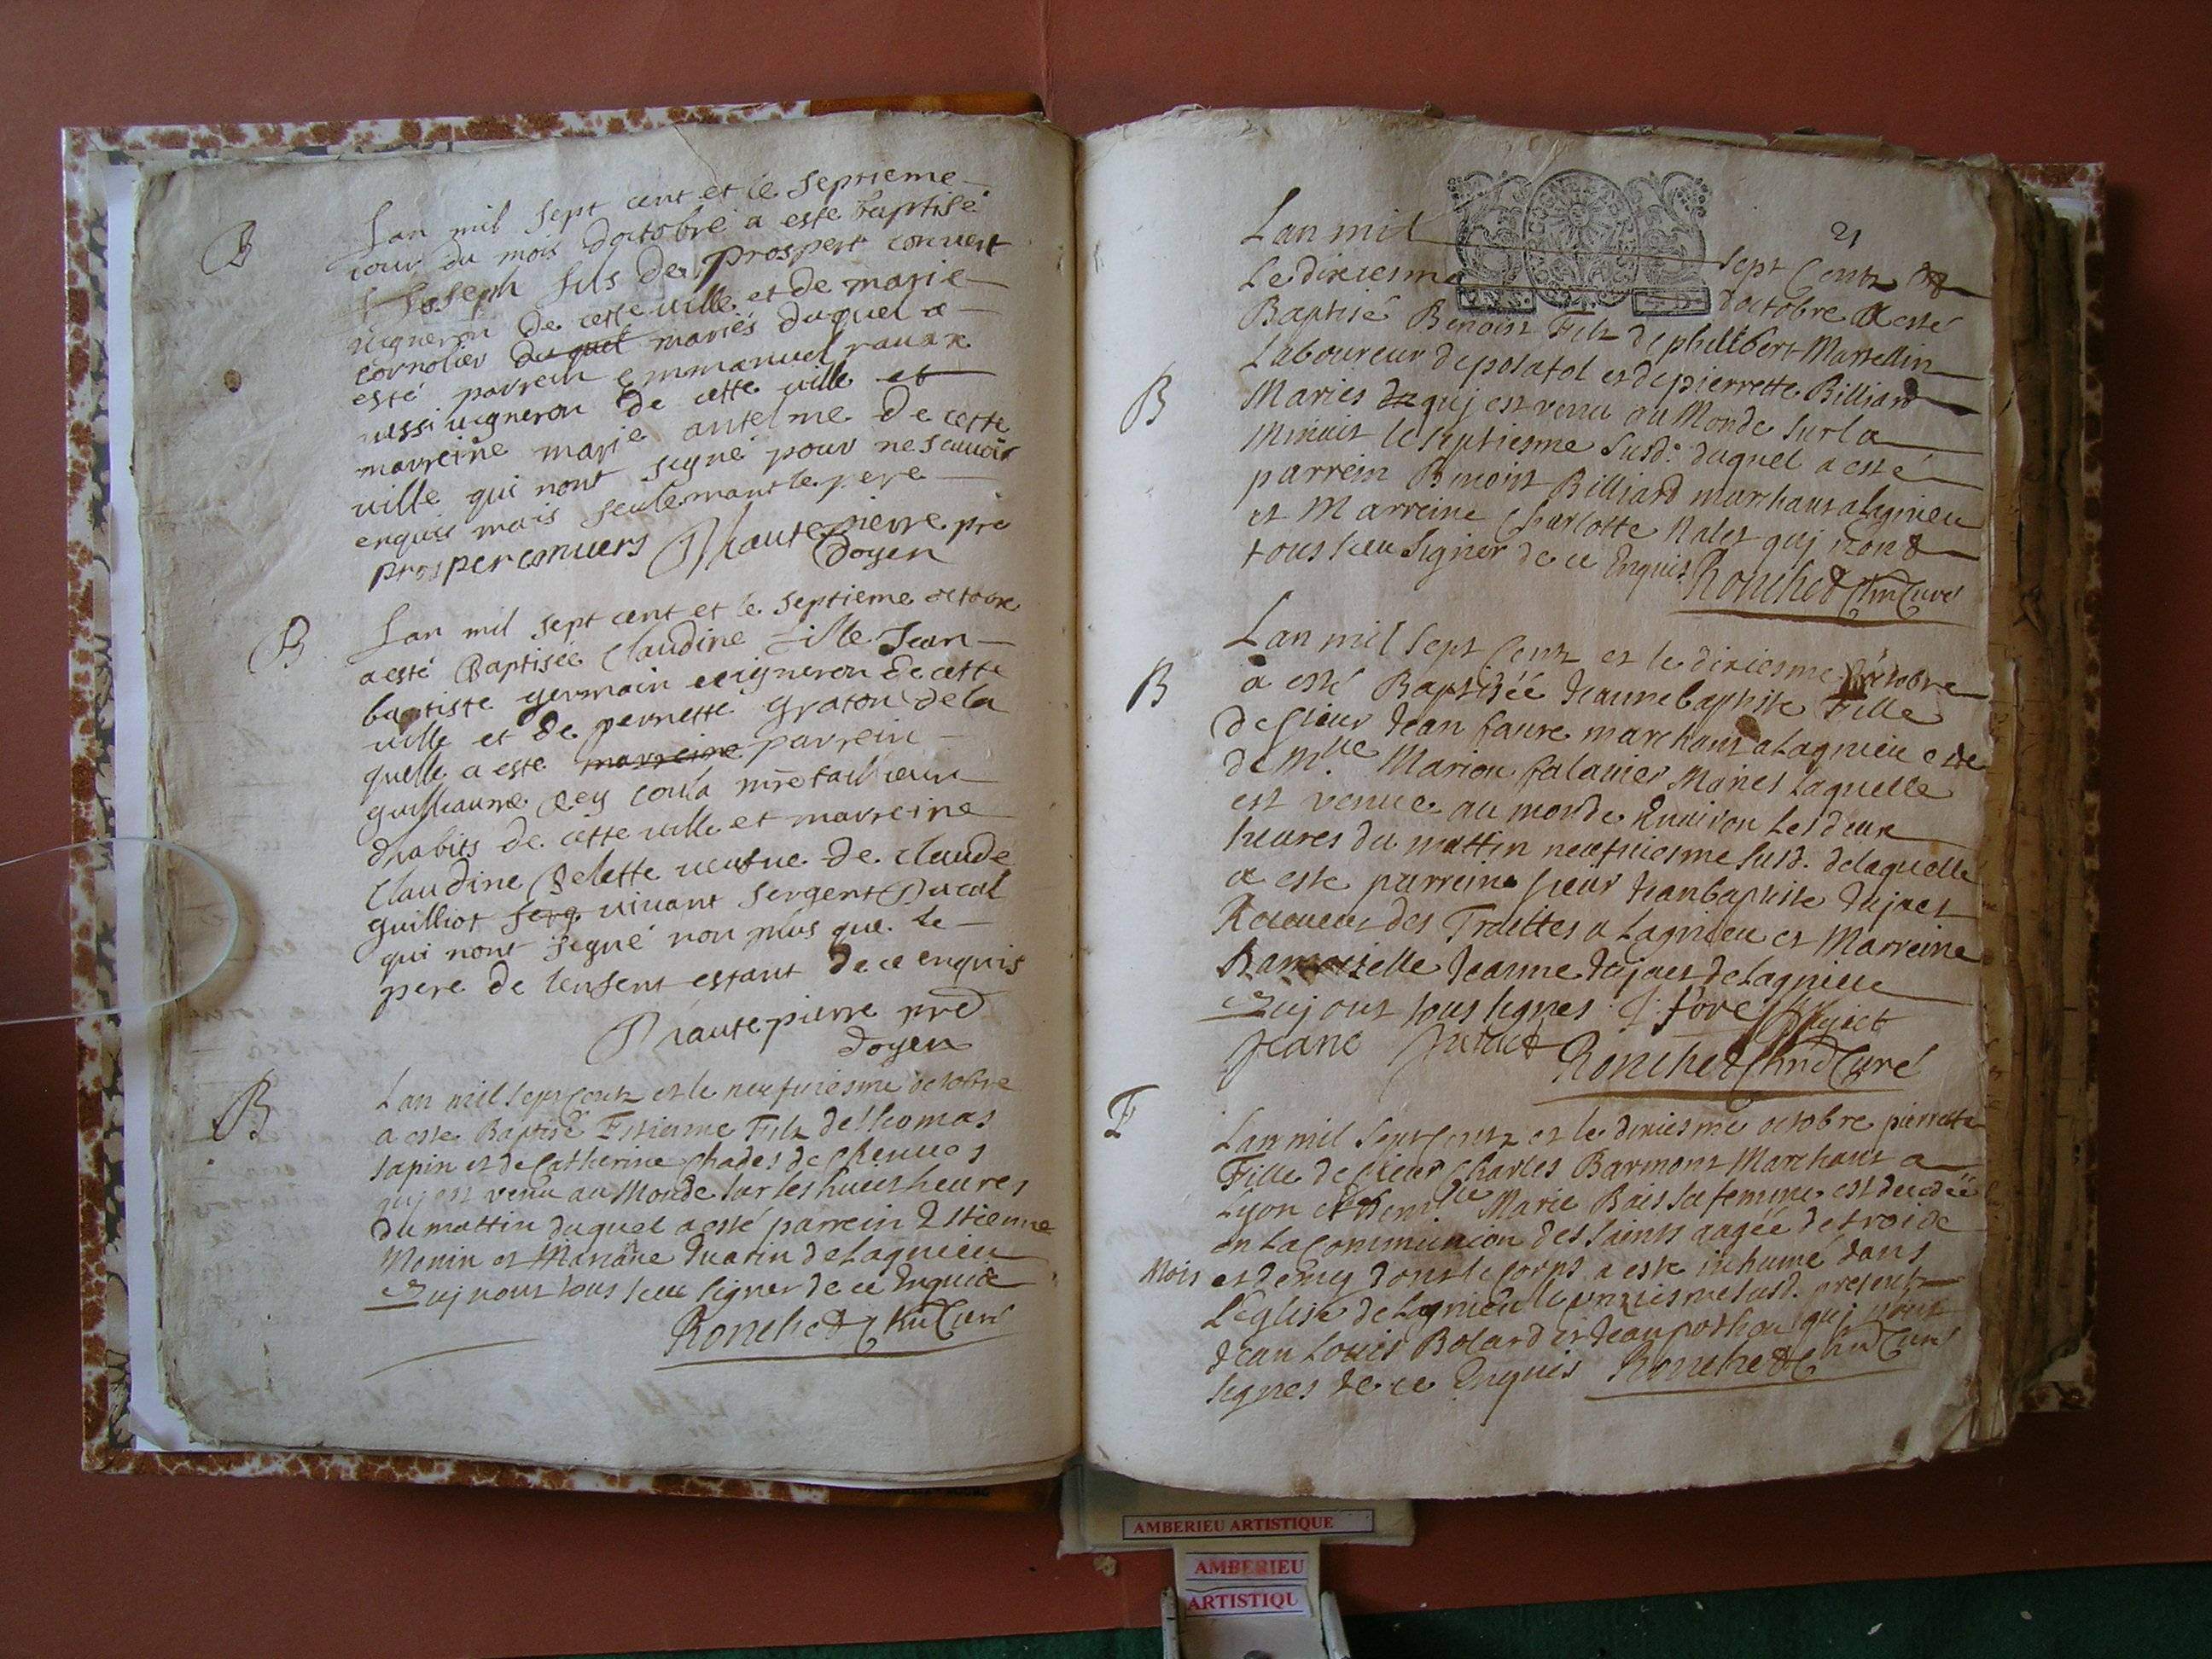 B
Lan mil sept cent et le septieme
jour du mois doctobre a este baptisé
Joseph fils de prospert convert
vigneron de cette ville et de marie
cornolier duquel mariés duquel a
esté parrein emmanuel ravax
aussi vigneron de cette ville et
marreine marie antelme de cette
ville qui nont signé pour ne scavoir
enquis mais seulemant le pere
prosper convers Hautepierre pre
doyen
B
Lan mil sept cent et le septieme octobre
a esté Baptisée Claudine fille Jean
baptiste germain vigneron de cette
ville et de pernette graton de la
quelle a este marreine parrein
guilleaume rey coula mre tailleur
dhabits de cette ville et marreine
Claudine Pelette veufue de claude
guilliot serg vivant sergent Ducal
qui nont signé non plus que le
pere de lenfent estant de ce enquis
Hautepierre pre
doyen
B
Lan mil sept Centz et le neufuiesme octobre
a este Baptisé Estienne Filz de Thomas
sapin et de Catherine Chades de Chenues
quj est venu au Monde sur les huict heures
du mattin duquel a esté parrein Estienne
Monin et Mariane de Lagnieu
quj nont tous sceu signer de ce Enquis
Ronchet Curé
21
Lan mil sept Centz et
Le dixiesme doctobre a esté
Baptisé Benoist Filz de philibert Martellin
B
Laboureur de posafol et de pierrette Billiard
Mariés quj est venu au Monde sur la
minuit le septiesme susd. duquel a esté
parrein Benoist Billiard marchant a Lagnieu
et Marreine Charlotte Nalet quj nont
tous sceu signer de ce Enquis Ronchet Curé
B
Lan mil sept Centz et le dixiesme octobre
a esté Baptisée Jeanne baptiste Fille
de sieur Jean faure marchant a Lagnieu et de
de mlle Marion falavier Mariés Laquelle
est venue au monde Enuiron Les deux
heures du mattin neufuiesme susd. de laquelle
a este parrein sieur Jean baptiste dujact
Receueur des Traittes a Lagnieu et Marreine
Damoiselle Jeanne dujact de Lagnieu
quj ont tous signes J. fore Dujact
Jeane Dujact Ronchet Curé
F
Lan mil sept Centz et le dixiesme octobre pierrette
Fille de sieur Charles Barmont Marchant a
Lyon et demlle Marie Bais sa femme est decedée
en La Communion des saints aagée de trois de
Mois et demy dont le Corps a este inhumé dans
L'eglise de Lagnieu le unziesme susd. presents
Jean Louis Bolard et Jean pothon quj nont
signes de ce Enquis Ronchet Curé
AMBERIEU ARTISTIQUE
AMBERIEU
ARTISTIQU